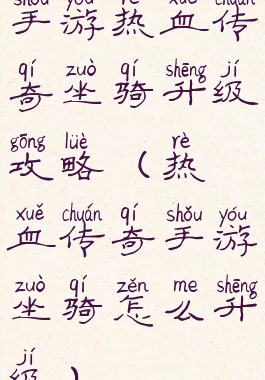 shǒu yóu rè xuè chuán
手游热血传
qí zuò qí shēng jí
奇坐骑升级
gōng lüè rè
攻略（热
xuě chuán qí shǒu yóu
血传奇手游
zuò qí zěn me shēng
坐骑怎么升
jí
级）